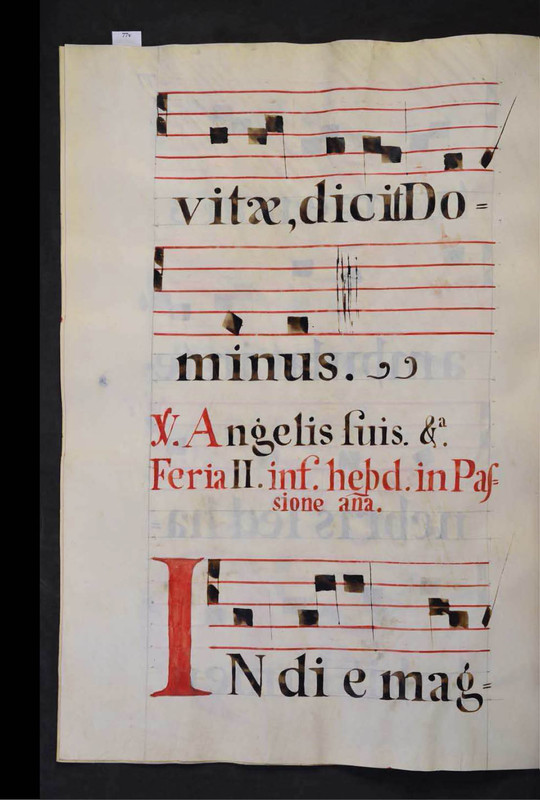 77v
vitæ, dicit Do=
minus.
℣. Angelis ſuis. &ª.
Feria II. inf. hebd. in Paſ=
sione añã.
IN die e mag=